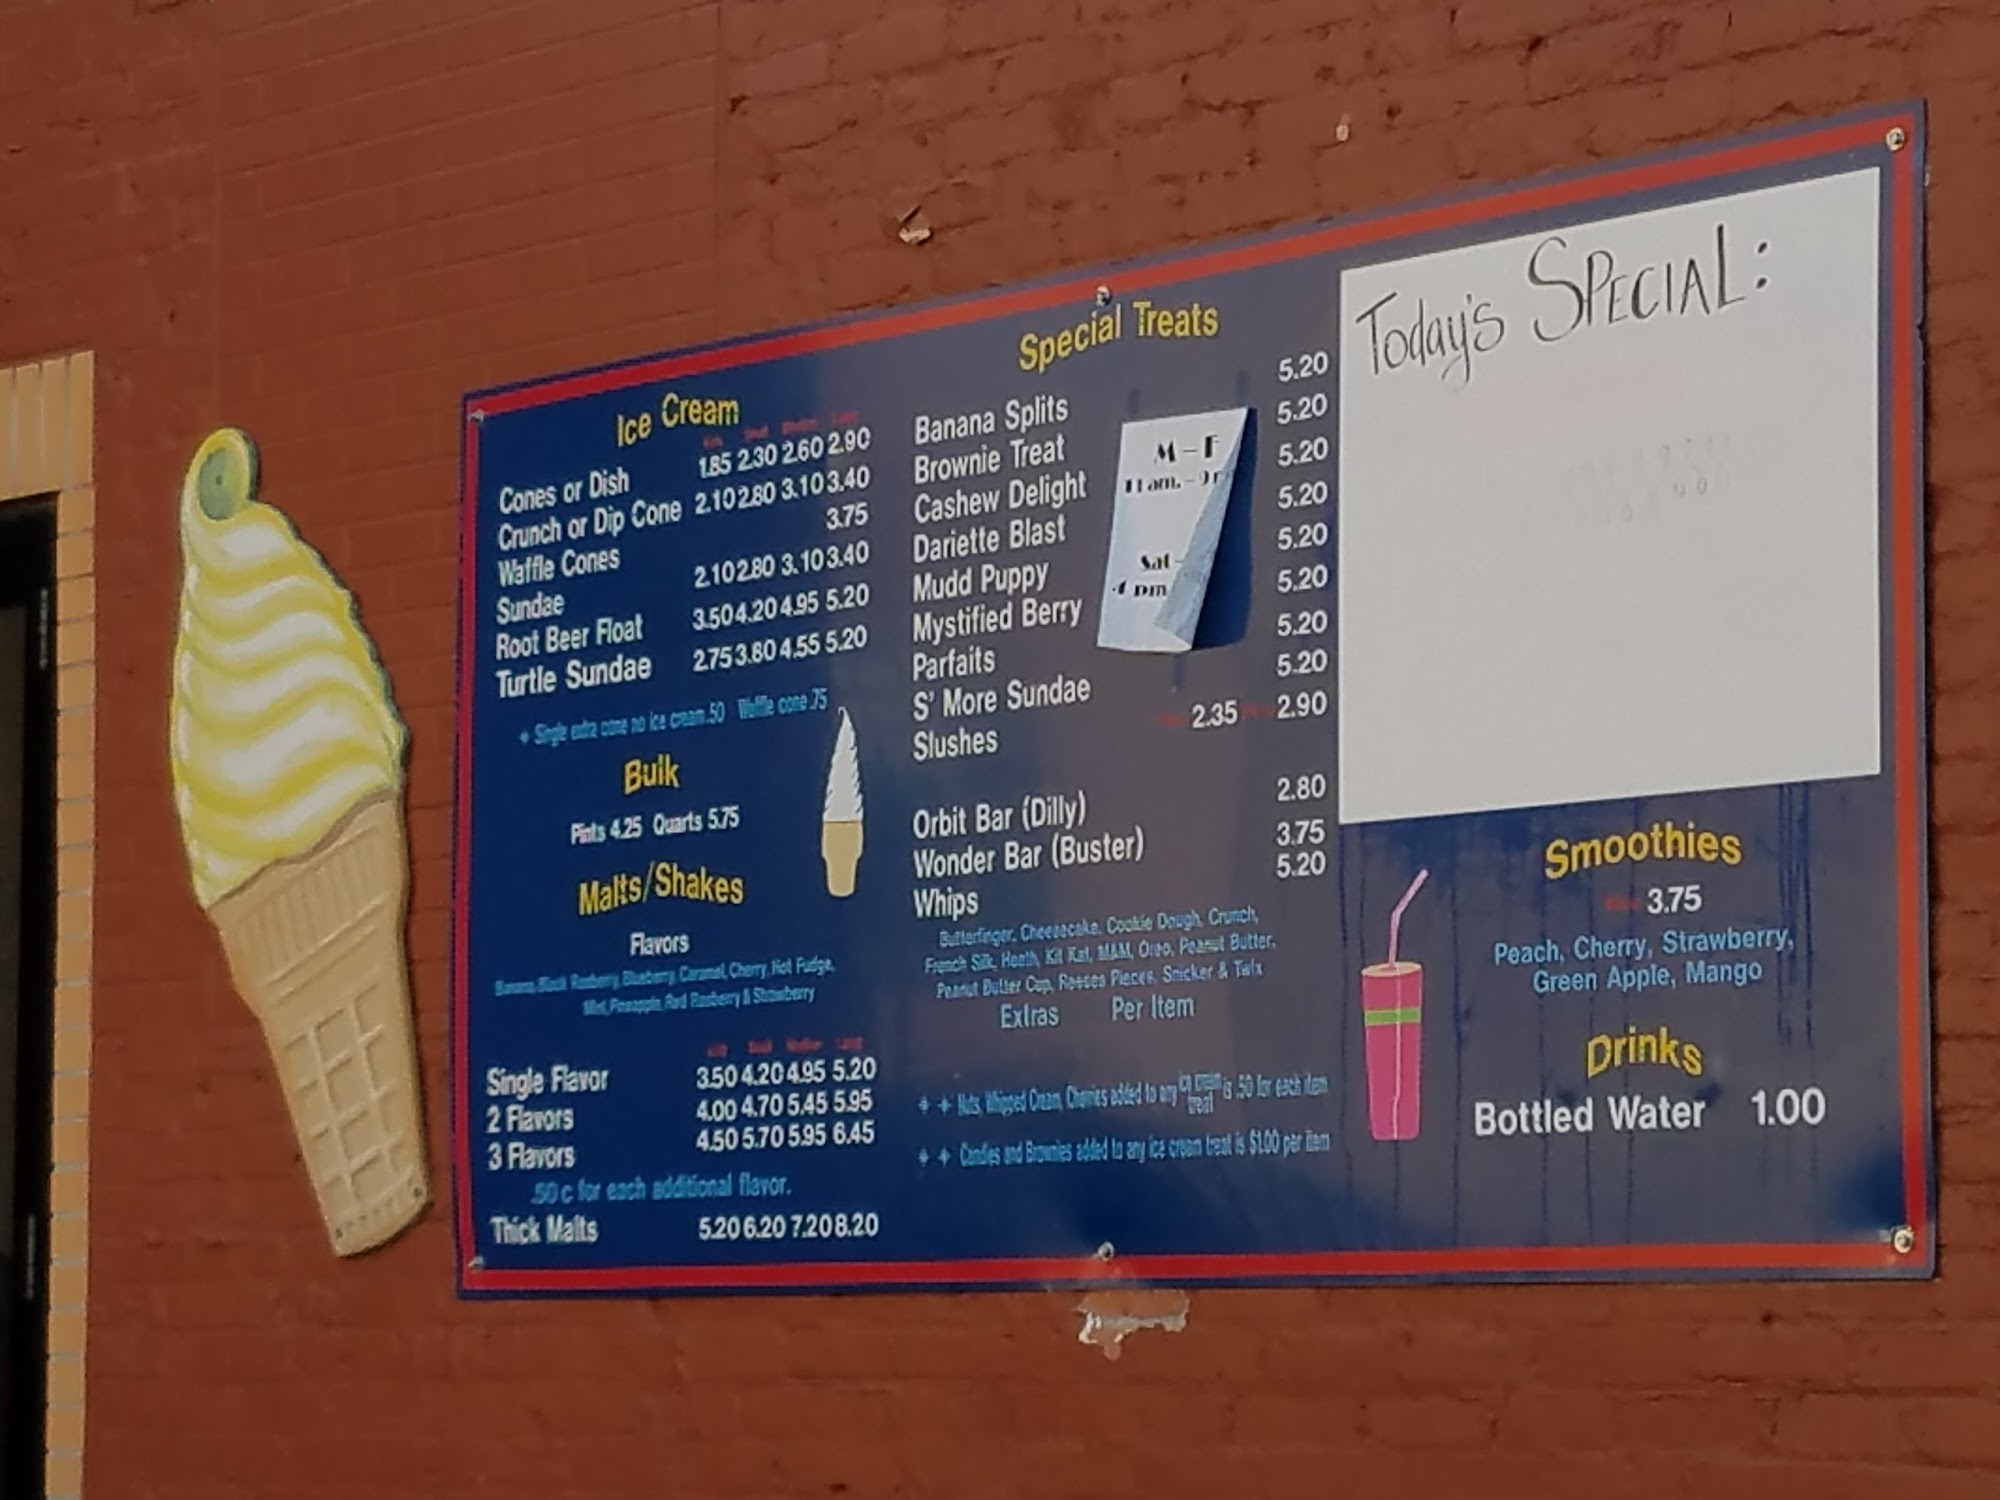 Ice Cream
Cones or Dish 1.85 2.30 2.60 2.90
Crunch or Dip Cone 2.10 2.80 3.10 3.40
Waffle Cones 3.75
Sundae 2.10 2.80 3.10 3.40
Root Beer Float 3.50 4.20 4.95 5.20
Turtle Sundae 2.75 3.80 4.55 5.20
Single extra cone no ice cream .50 Waffle cone .75
Bulk
Pints 4.25 Quarts 5.75
Malts/Shakes
Flavors
Banana, Black Rasberry, Blueberry, Caramel, Cherry, Hot Fudge,
Mint, Pineapple, Red Rasberry & Strawberry
Single Flavor 3.50 4.20 4.95 5.20
2 Flavors 4.00 4.70 5.45 5.95
3 Flavors 4.50 5.70 5.95 6.45
.50 c for each additional flavor.
Thick Malts 5.20 6.20 7.20 8.20
Special Treats
Banana Splits 5.20
Brownie Treat 5.20
Cashew Delight 5.20
Dariette Blast 5.20
Mudd Puppy 5.20
Mystified Berry 5.20
Parfaits 5.20
S' More Sundae 5.20
Slushes 2.35 2.90
Orbit Bar (Dilly) 2.80
Wonder Bar (Buster) 3.75
Whips 5.20
Butterfinger, Cheesecake, Cookie Dough, Crunch,
French Silk, Heath, Kit Kat, M&M, Oreo, Peanut Butter,
Peanut Butter Cup, Reeses Pieces, Snicker & Twix
Extras Per Item
Nuts, Whipped Cream, Cherries added to any ice cream treat is .50 for each item
Candies and Brownies added to any ice cream treat is $1.00 per item
M - F
11 am. - 9
Sat -
4 pm
Today's SPECIAL:
Smoothies
3.75
Peach, Cherry, Strawberry,
Green Apple, Mango
Drinks
Bottled Water 1.00